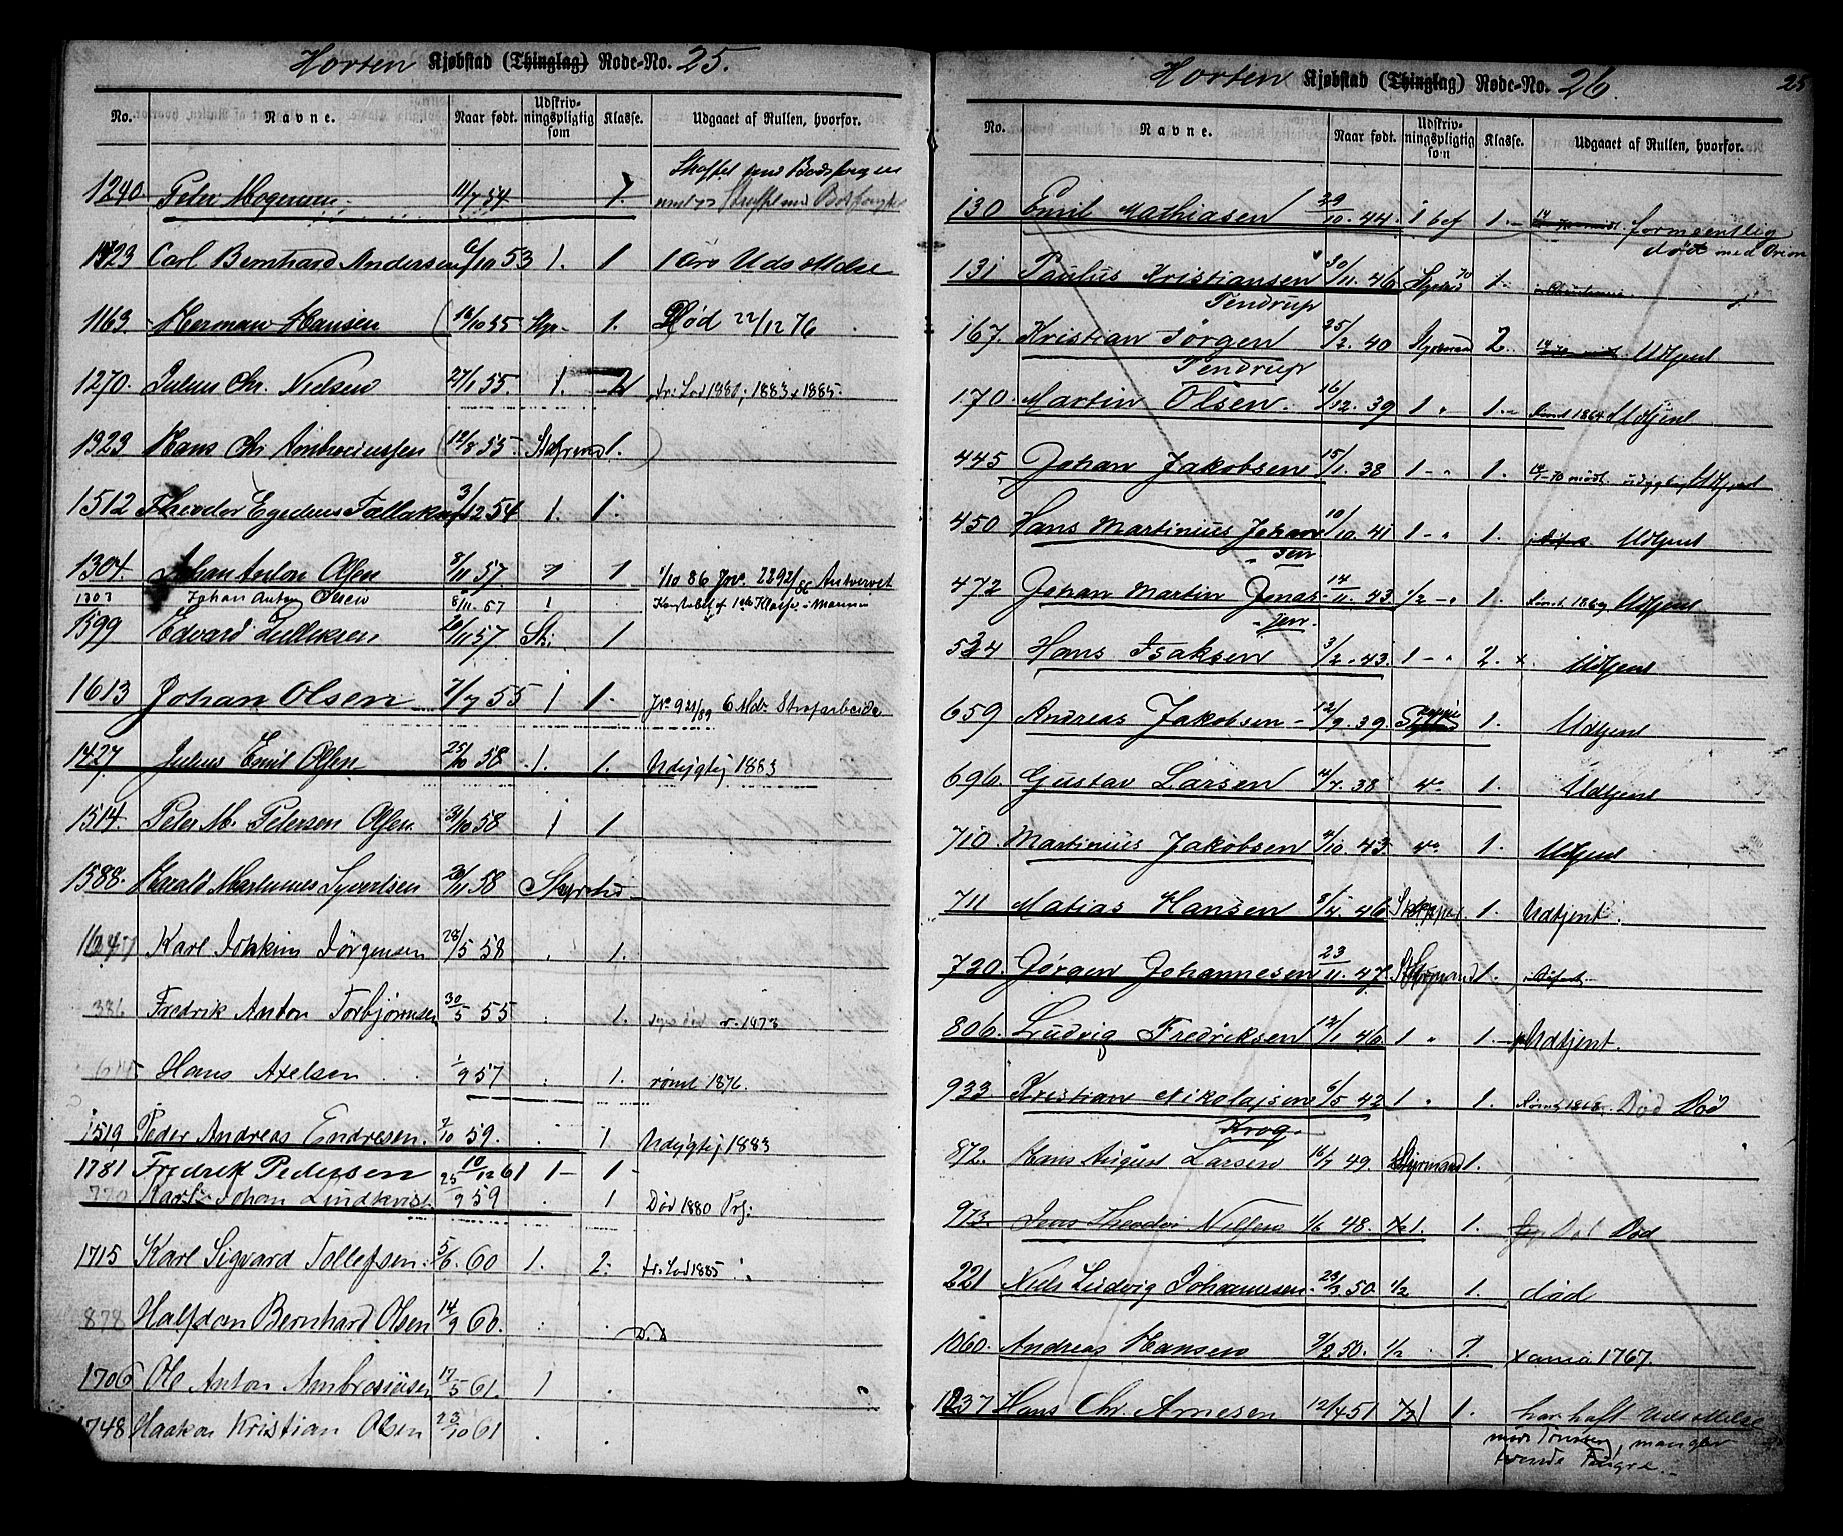 Horten Kjøbstad (Thinglag) Rode-No. 25.
No. Navne. Naar født. Udskrivningspligtig som Klasse. Udgaaet af Rullen, hvorfor.
1240. Peter Mogensen 11/7 54 1. Straffet med Bodsfængsel
1423 Carl Bernhard Andersen 6/10 53 1. 1 1 Års Udsættelse
1163 Herman Hansen 16/10 55 Styr. 1. Død 22/12 76
1270. Julius Chr. Nielsen 27/1 55. 1. 2 fr. Lod 1881, 1883 & 1885.
1323 Hans Chr Ambrociussen 12/8 55. Styrmd 1.
1512 Theodor Egedius Tallaksen 3/12 54 1. 1.
1304. Johan Anton Olsen 8/11 57 1 1 1/10 86 Jno. 2292/86 Antvervet
1303 Johan Anton Olsen 8/11. 57 1 Konstabel af 1ste Klasse i Marinen
1599 Edvard Lulliksen 20/11 57. St. 1
1613 Johan Olsen 7/7 55 1 1. Jno 921/89 6 Mdr Strafarbeide
1427 Julius Emil Olsen 25/10 58 1. 1. Udygtig 1883
1514. Peter M. Petersen Olsen 31/10 58 1 1
1588. Harald Martinius Syvertsen 20/11 58 Styrmd
1647 Karl Joakim Jørgensen 28/5 58 1.
386 Fredrik Anton Torbjørnsen 30/5 55 1. 1873
Hans Axelsen 1/9 57 1. rømt 1876.
1519 Peder Andreas Endresen. 7/10 59. 1 Udygtig 1883
1781 Fredrik Pedersen 10/12 61 1 1
770 Karl Johan Lindkvist 25/9 59 1 Død 1880
1715 Karl Sigvard Tollefsen 5/6. 60 1. 2. fr. Lod 1885
878 Halfdan Bernhard Olsen 14/9 60.
1706 Ole Anton Ambrosiusen 17/5 61. 1
1748 Haakon Kristian Olsen 23/10 61
Horten Kjøbstad (Thinglag) Rode-No. 26. 25
No. Navne. Naar født. Udskrivningspligtig som Klasse. Udgaaet af Rullen, hvorfor.
130 Emil Mathiasen 29/10. 44 1 bef 1. formentlig
død med Orion
131 Paulus Kristiansen 30/11. 46 1.
Tendrup
167. Kristian Jørgen 25/2. 40 Styrmand 2. Udtjent
Tendrup
170. Martin Olsen. 16/12. 39 1 1. Rømt 1864 Udtjent
445 Johan Jakobsen 15/1. 38 1 1. 70 mødt Udtjent
450 Hans Martinius Johan 10/10. 41 1 1. Udtjent
sen
472 Johan Martin Jonas 14/11. 43 1/2 1. Rømt 1869 Udtjent
sen.
524 Hans Isaksen 3/2. 43. 1 2. x. Udtjent
659 Andreas Jakobsen 12/9. 39. 1. Udtjent
696. Gustav Larsen 4/7. 38 1. Udtjent
710. Martinius Jakobsen 4/10. 43 1. Udtjent
711 Matias Hansen 3/4. 46 1. Udtjent.
720. Jørgen Johannesen 23/11. 47. Styrmand 1.
806. Ludvig Fredriksen 12/1 46 1 1. Udtjent.
933. Kristian Nikolajsen 6/5 42 1 1. Rømt 1868. Død Død
Krog
872. Hans August Larsen 16/7 49. Styrmand 1.
973. Jens Theodor Nilsen 1/6 48. 1/2 1. 1. Død Død
221 Niels Ludvig Johannesen. 23/3 50. 1/2 1. død
1060. Andreas Hansen 9/2 50. 1/2 1. xania 1767.
1237 Hans Chr. Arnesen 12/4 51 1/2 1. har haft Udsættelse
mangler
tvende Fingre.